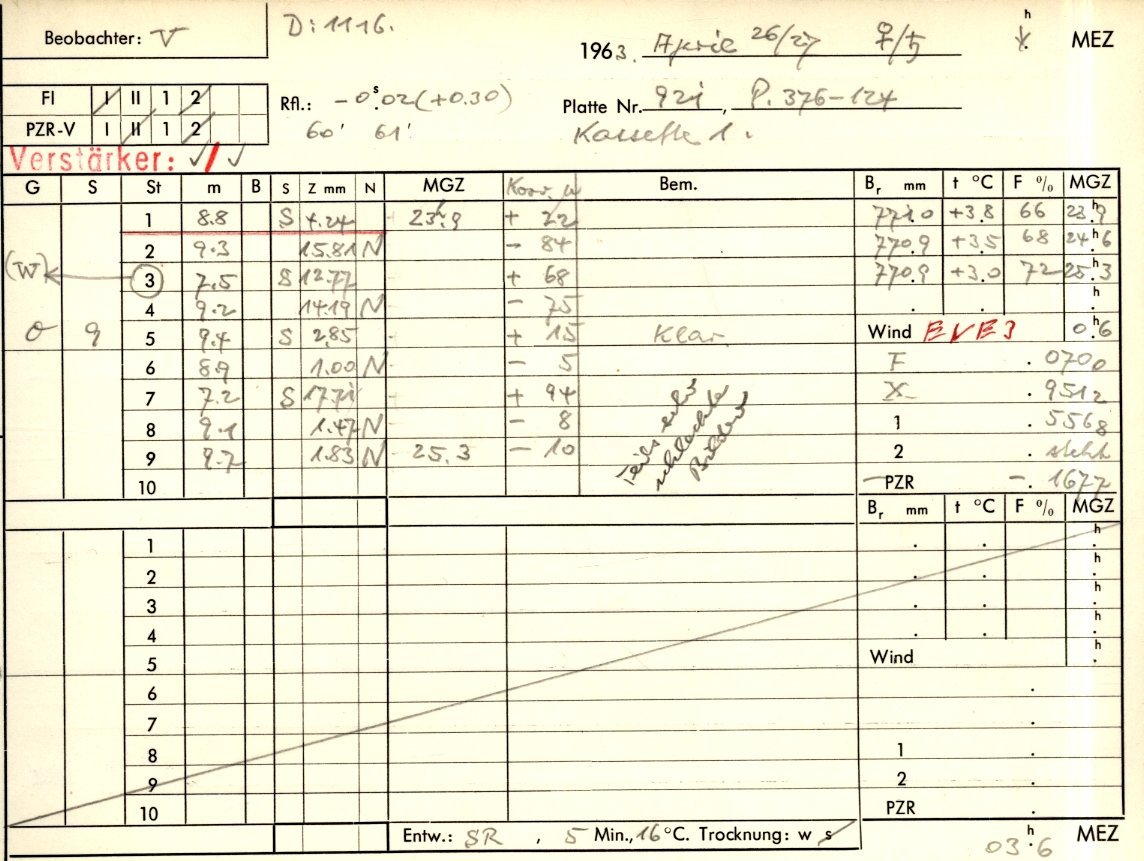 Beobachter: V
D: 1116.
1963. April 26/27 ♀/♄ h MEZ
FI I II 1 2
PZR-V I II 1 2
Rfl.: -0ˢ.02 (+0.30)
60' 61'
Platte Nr. 921, P. 376-124
Kassette 1.
Verstärker: ✓/✓
G S St m B S Z mm N MGZ Korr. μ Bem. Bᵣ mm t °C F % MGZ
1 8.8 S 4.24 23ʰ.9 + 22 771.0 +3.8 66 23ʰ.9
2 9.3 15.81 N - 84 770.9 +3.5 68 24ʰ.6
(W) ← 3 7.5 S 12.77 + 68 770.9 +3.0 72 25ʰ.3
4 9.2 14.19 N - 75 . . h .
0 9 5 9.4 S 2.85 + 15 Klar Wind E VE 3 0ʰ.6
6 8.9 1.00 N - 5 F . 0700
7 7.2 S 17.71 + 94 X . 9512
8 9.1 1.47 N - 8 1 . 5568
9 9.7 1.83 N 25.3 - 10 2 . steht
10 -PZR -. 1677
Teils sehr
schlechte
Bilder
Bᵣ mm t °C F % MGZ
1 . . h .
2 . . h .
3 . . h .
4 . . h .
5 Wind h .
6 .
7 .
8 1 .
9 2 .
10 PZR .
Entw.: SR , 5 Min., 16 °C. Trocknung: w s
03ʰ.6 MEZ